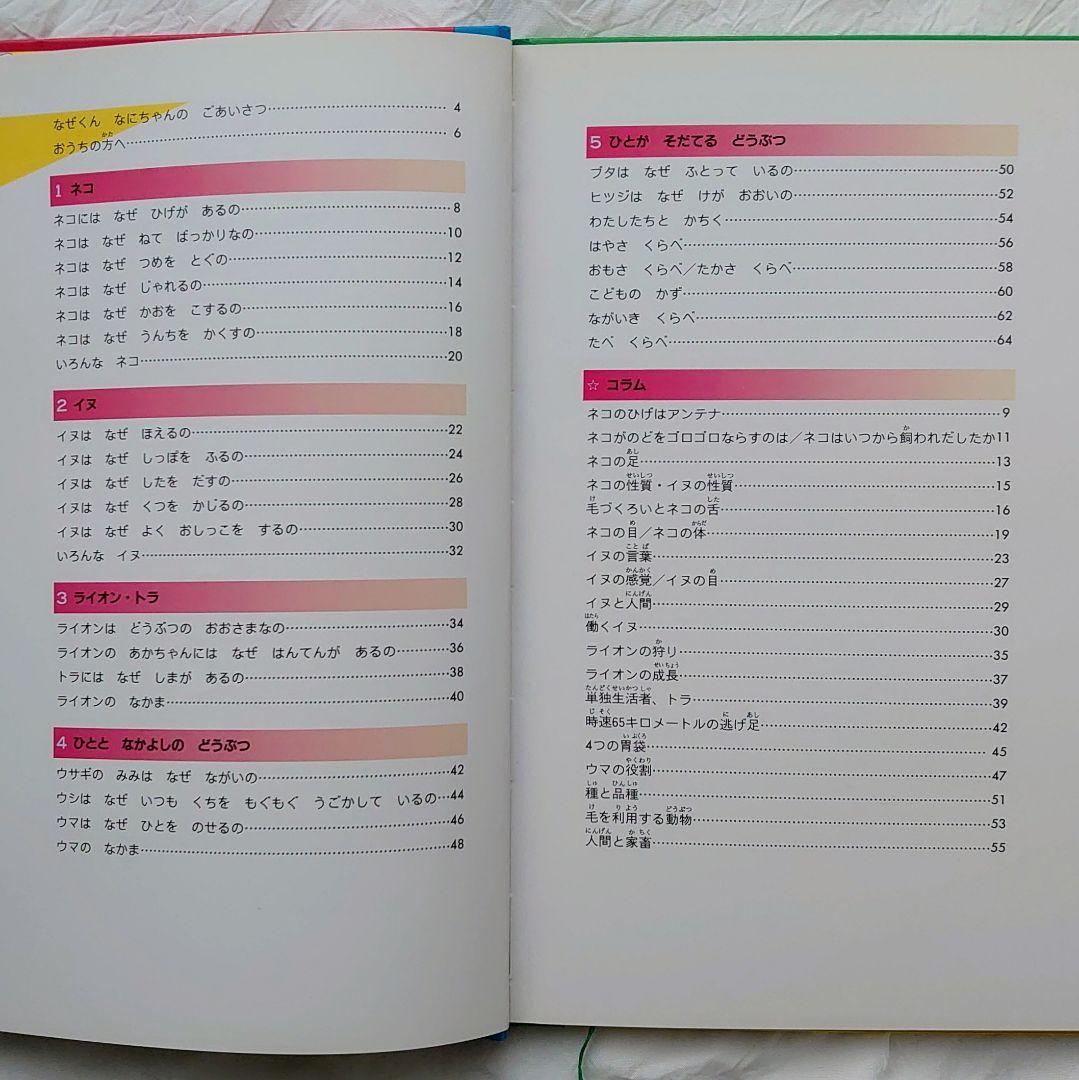 なぜくん　なにちゃんの　ごあいさつ……4
おうちの方へ……6
1 ネコ
ネコには　なぜ　ひげが　あるの……8
ネコは　なぜ　ねて　ばっかりなの……10
ネコは　なぜ　つめを　とぐの……12
ネコは　なぜ　じゃれるの……14
ネコは　なぜ　かおを　こするの……16
ネコは　なぜ　うんちを　かくすの……18
いろんな　ネコ……20
2 イヌ
イヌは　なぜ　ほえるの……22
イヌは　なぜ　しっぽを　ふるの……24
イヌは　なぜ　したを　だすの……26
イヌは　なぜ　くつを　かじるの……28
イヌは　なぜ　よく　おしっこを　するの……30
いろんな　イヌ……32
3 ライオン・トラ
ライオンは　どうぶつの　おおさまなの……34
ライオンの　あかちゃんには　なぜ　はんてんが　あるの……36
トラには　なぜ　しまが　あるの……38
ライオンの　なかま……40
4 ひとと　なかよしの　どうぶつ
ウサギの　みみは　なぜ　ながいの……42
ウシは　なぜ　いつも　くちを　もぐもぐ　うごかして　いるの…44
ウマは　なぜ　ひとを　のせるの……46
ウマの　なかま……48
5 ひとが　そだてる　どうぶつ
ブタは　なぜ　ふとって　いるの……50
ヒツジは　なぜ　けが　おおいの……52
わたしたちと　かちく……54
はやさ　くらべ……56
おもさ　くらべ／たかさ　くらべ……58
こどもの　かず……60
ながいき　くらべ……62
たべ　くらべ……64
☆ コラム
ネコのひげはアンテナ……9
ネコがのどをゴロゴロならすのは／ネコはいつから飼われだしたか11
ネコの足……13
ネコの性質・イヌの性質……15
毛づくろいとネコの舌……16
ネコの目／ネコの体……19
イヌの言葉……23
イヌの感覚／イヌの目……27
イヌと人間……29
働くイヌ……30
ライオンの狩り……35
ライオンの成長……37
単独生活者、トラ……39
時速65キロメートルの逃げ足……42
4つの胃袋……45
ウマの役割……47
種と品種……51
毛を利用する動物……53
人間と家畜……55